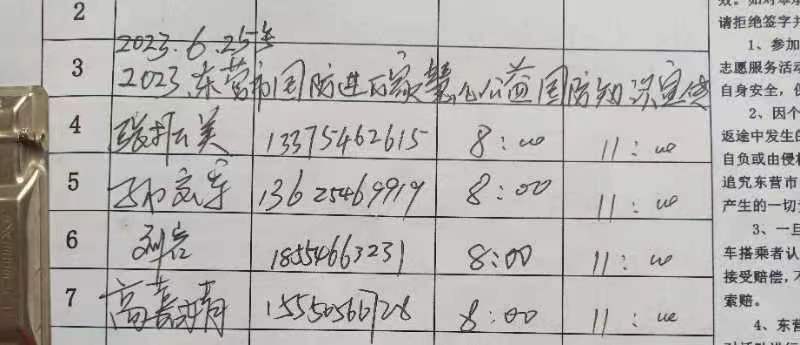 2
2023.6.25号
3 2023.东营市国防进万家 公益国防知识宣传
4 张 美 13375462615 8:00 11:00
5 孙 军 13625469919 8:00 11:00
6 刘 18554663231 8:00 11:00
7 高 15550566728 8:00 11:00
请拒绝签字并
1、参加
志愿服务活动
自身安全,
2、因个
返途中发生的
自负或由侵权
追究东营市
产生的一切
3、一旦
车搭乘者认
接受赔偿,不
索赔。
4、东营